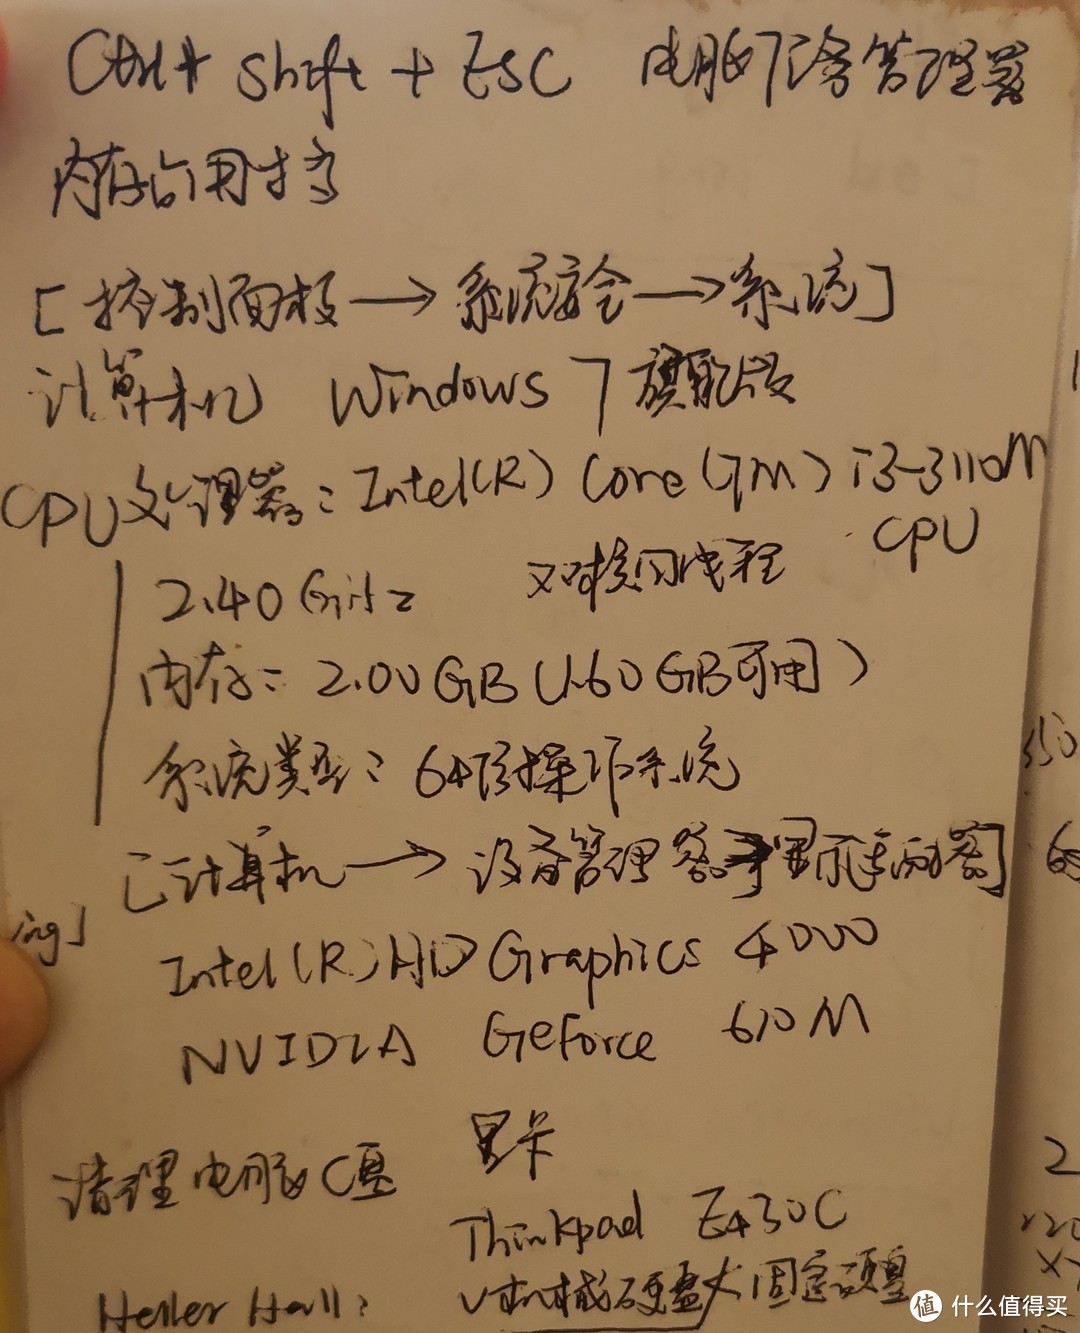 Ctrl+ Shift + ESC 电脑任务管理器
内存占用
[控制面板→系统安全→系统]
计算机 Windows 7 旗舰版
CPU处理器: Intel(R) Core(TM) i3-3110M
CPU
2.40GHz 双核四线程
内存: 2.00GB (1.60GB可用)
系统类型: 64位操作系统
[计算机→设备管理器 显示适配器]
ing]
Intel(R)HD Graphics 4000
NVIDIA Geforce 610M
显卡
清理电脑C盘
Thinkpad E430C
机械硬盘
值 什么值得买